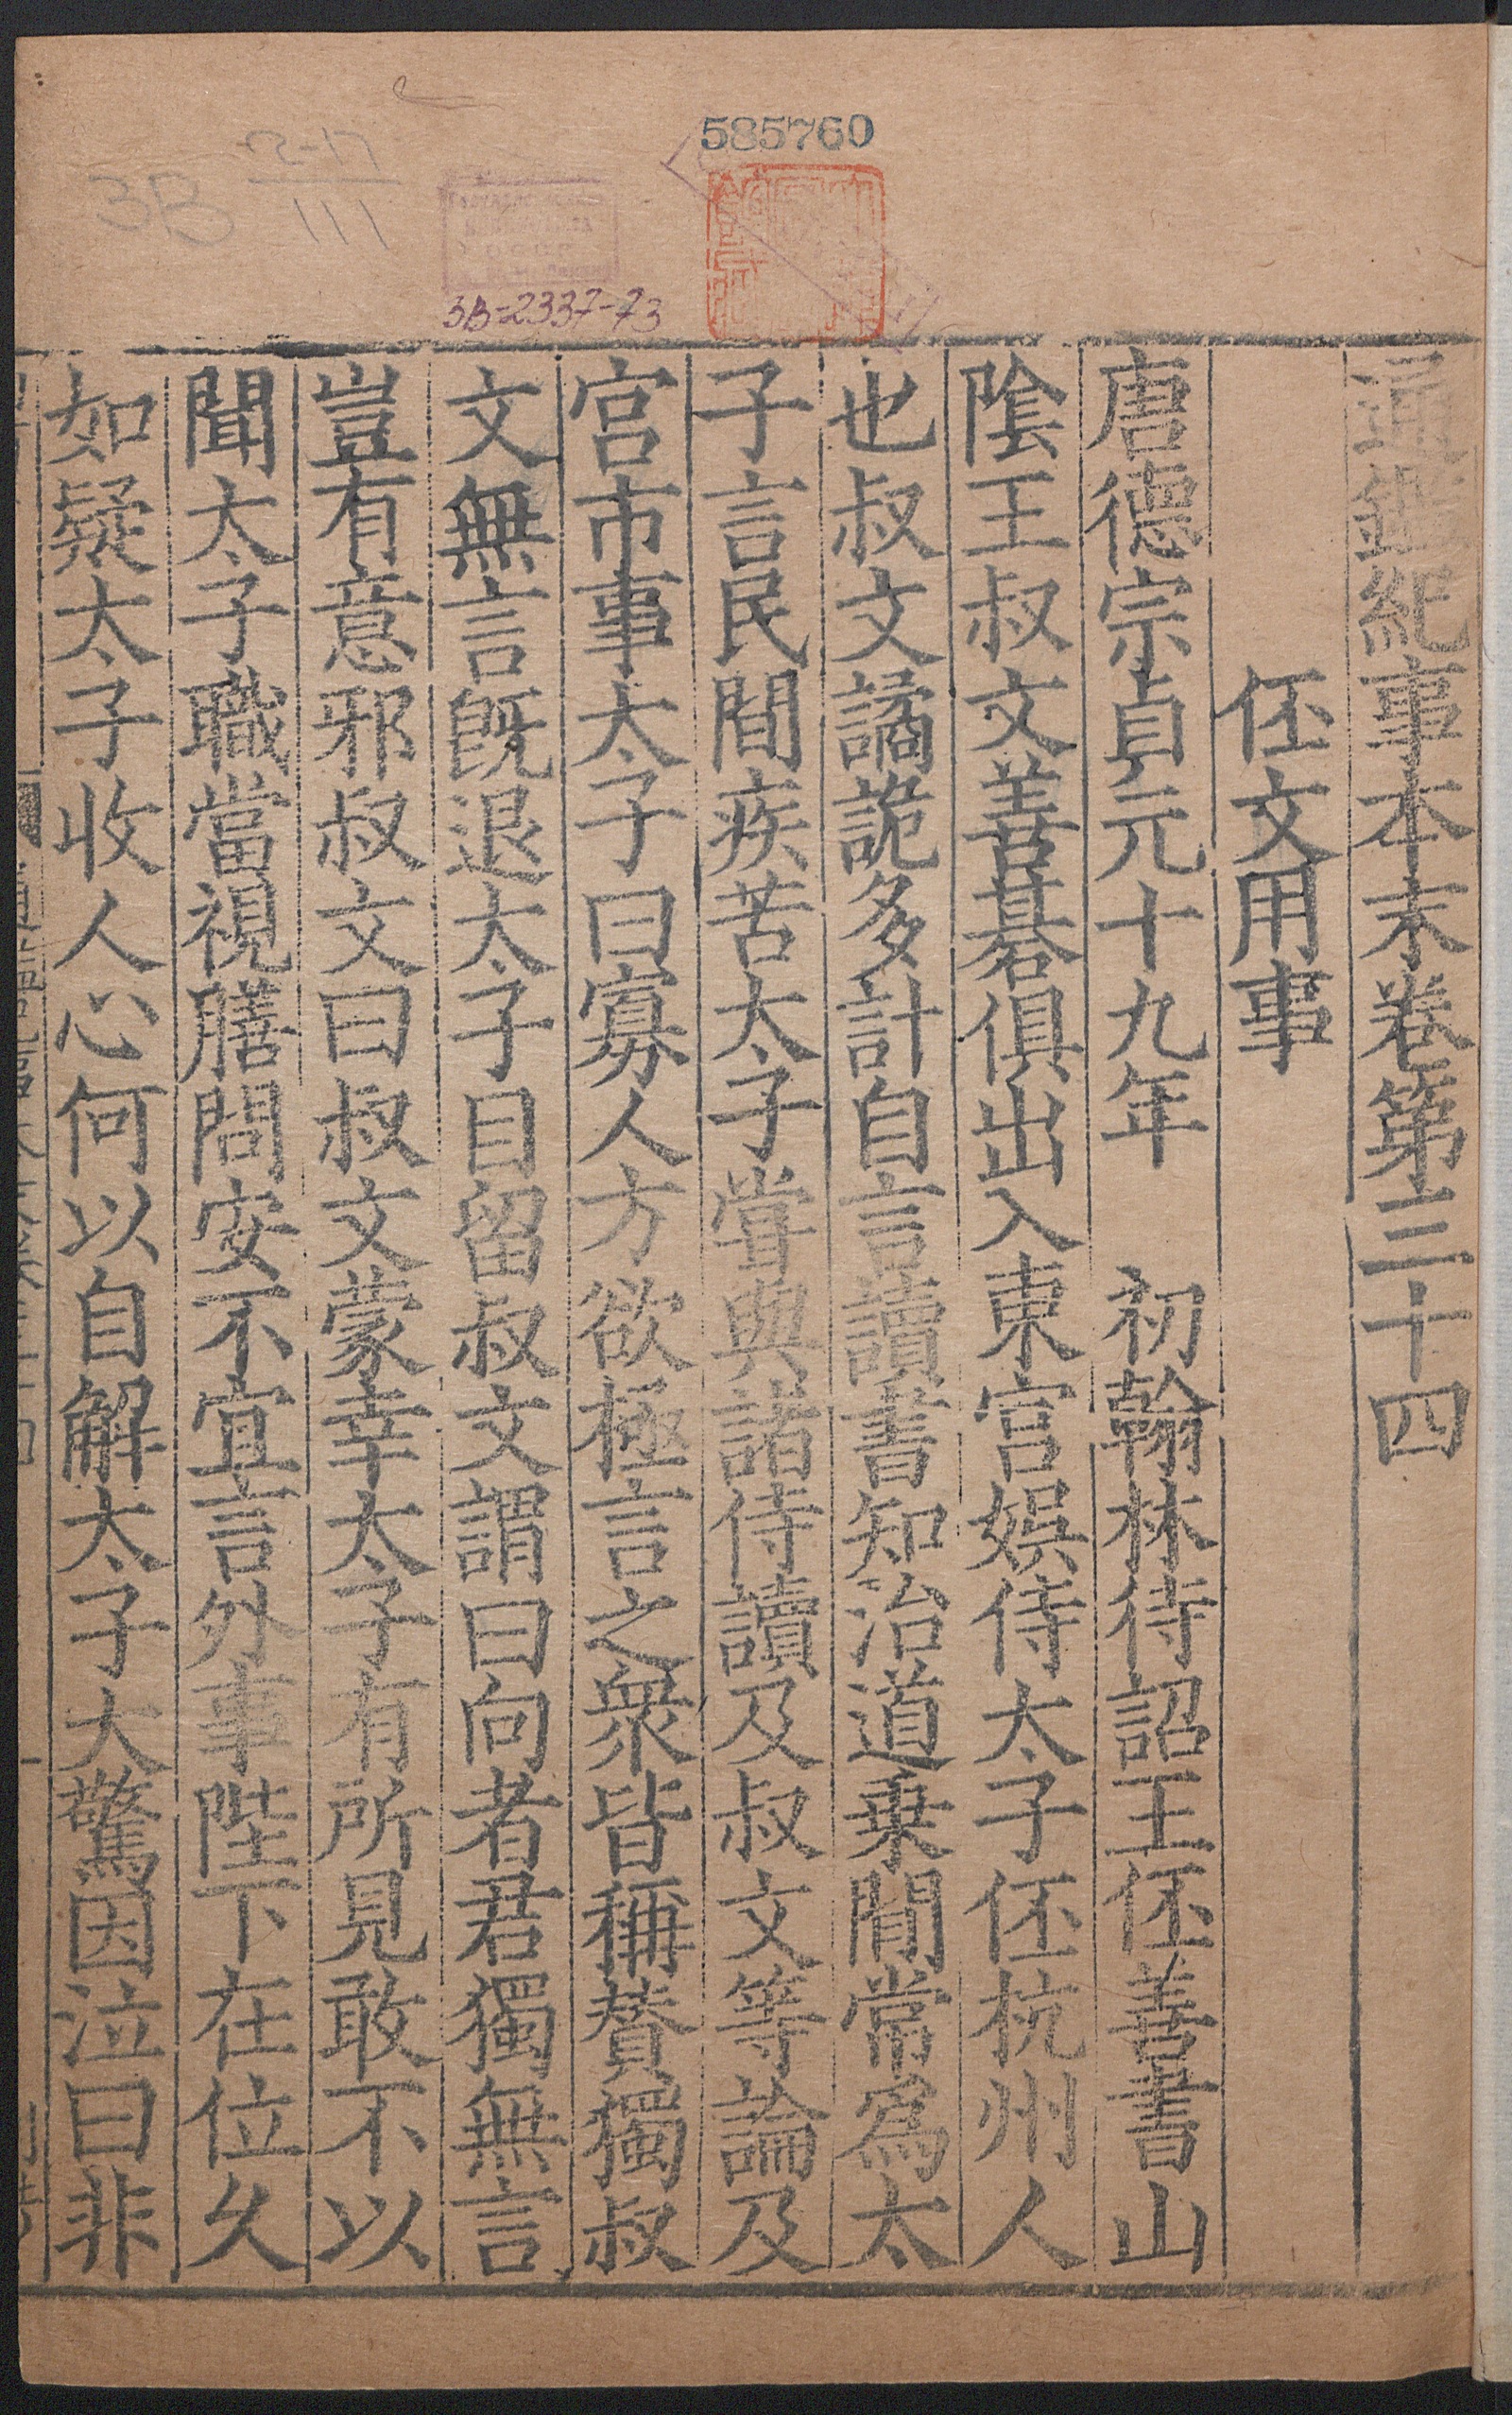 585760
3B-2337-73
3B
通鑑紀事本末卷第三十四
伾文用事
唐德宗貞元十九年　初翰林待詔王伾善書山
陰王叔文善碁俱出入東宮娛侍太子伾杭州人
也叔文譎詭多計自言讀書知治道乗間常爲太
子言民間疾苦太子甞與諸侍讀及叔文等論及
宮市事太子曰寡人方欲極言之衆皆稱賛獨叔
文無言旣退太子自留叔文謂曰向者君獨無言
豈有意邪叔文曰叔文蒙幸太子有所見敢不以
聞太子職當視膳問安不宜言外事陛下在位久
如疑太子收人心何以自解太子大驚因泣曰非